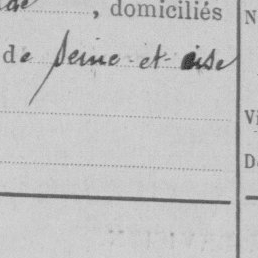 , domiciliés N
de Seine-et-Oise
Vi
D